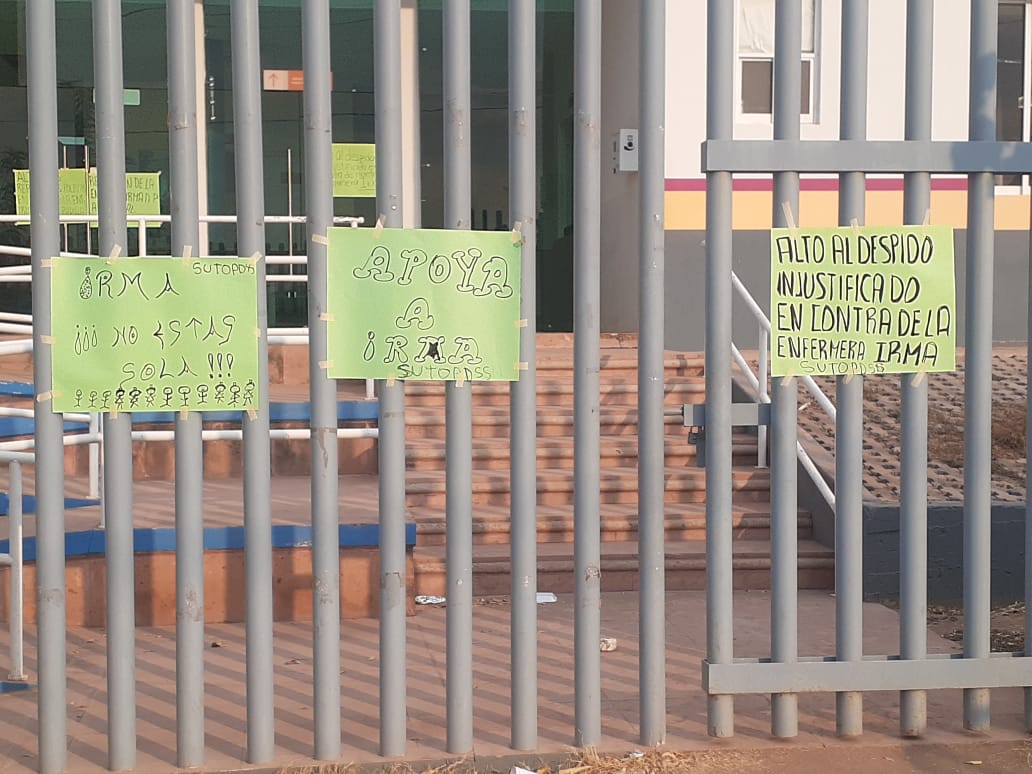 al despido
IRMA SUTOPDSS
¡¡¡ NO ESTAS
SOLA !!!
APOYA
A
IRMA
SUTOPDSS
ALTO AL DESPIDO
INJUSTIFICADO
EN CONTRA DE LA
ENFERMERA IRMA
SUTOPDSS